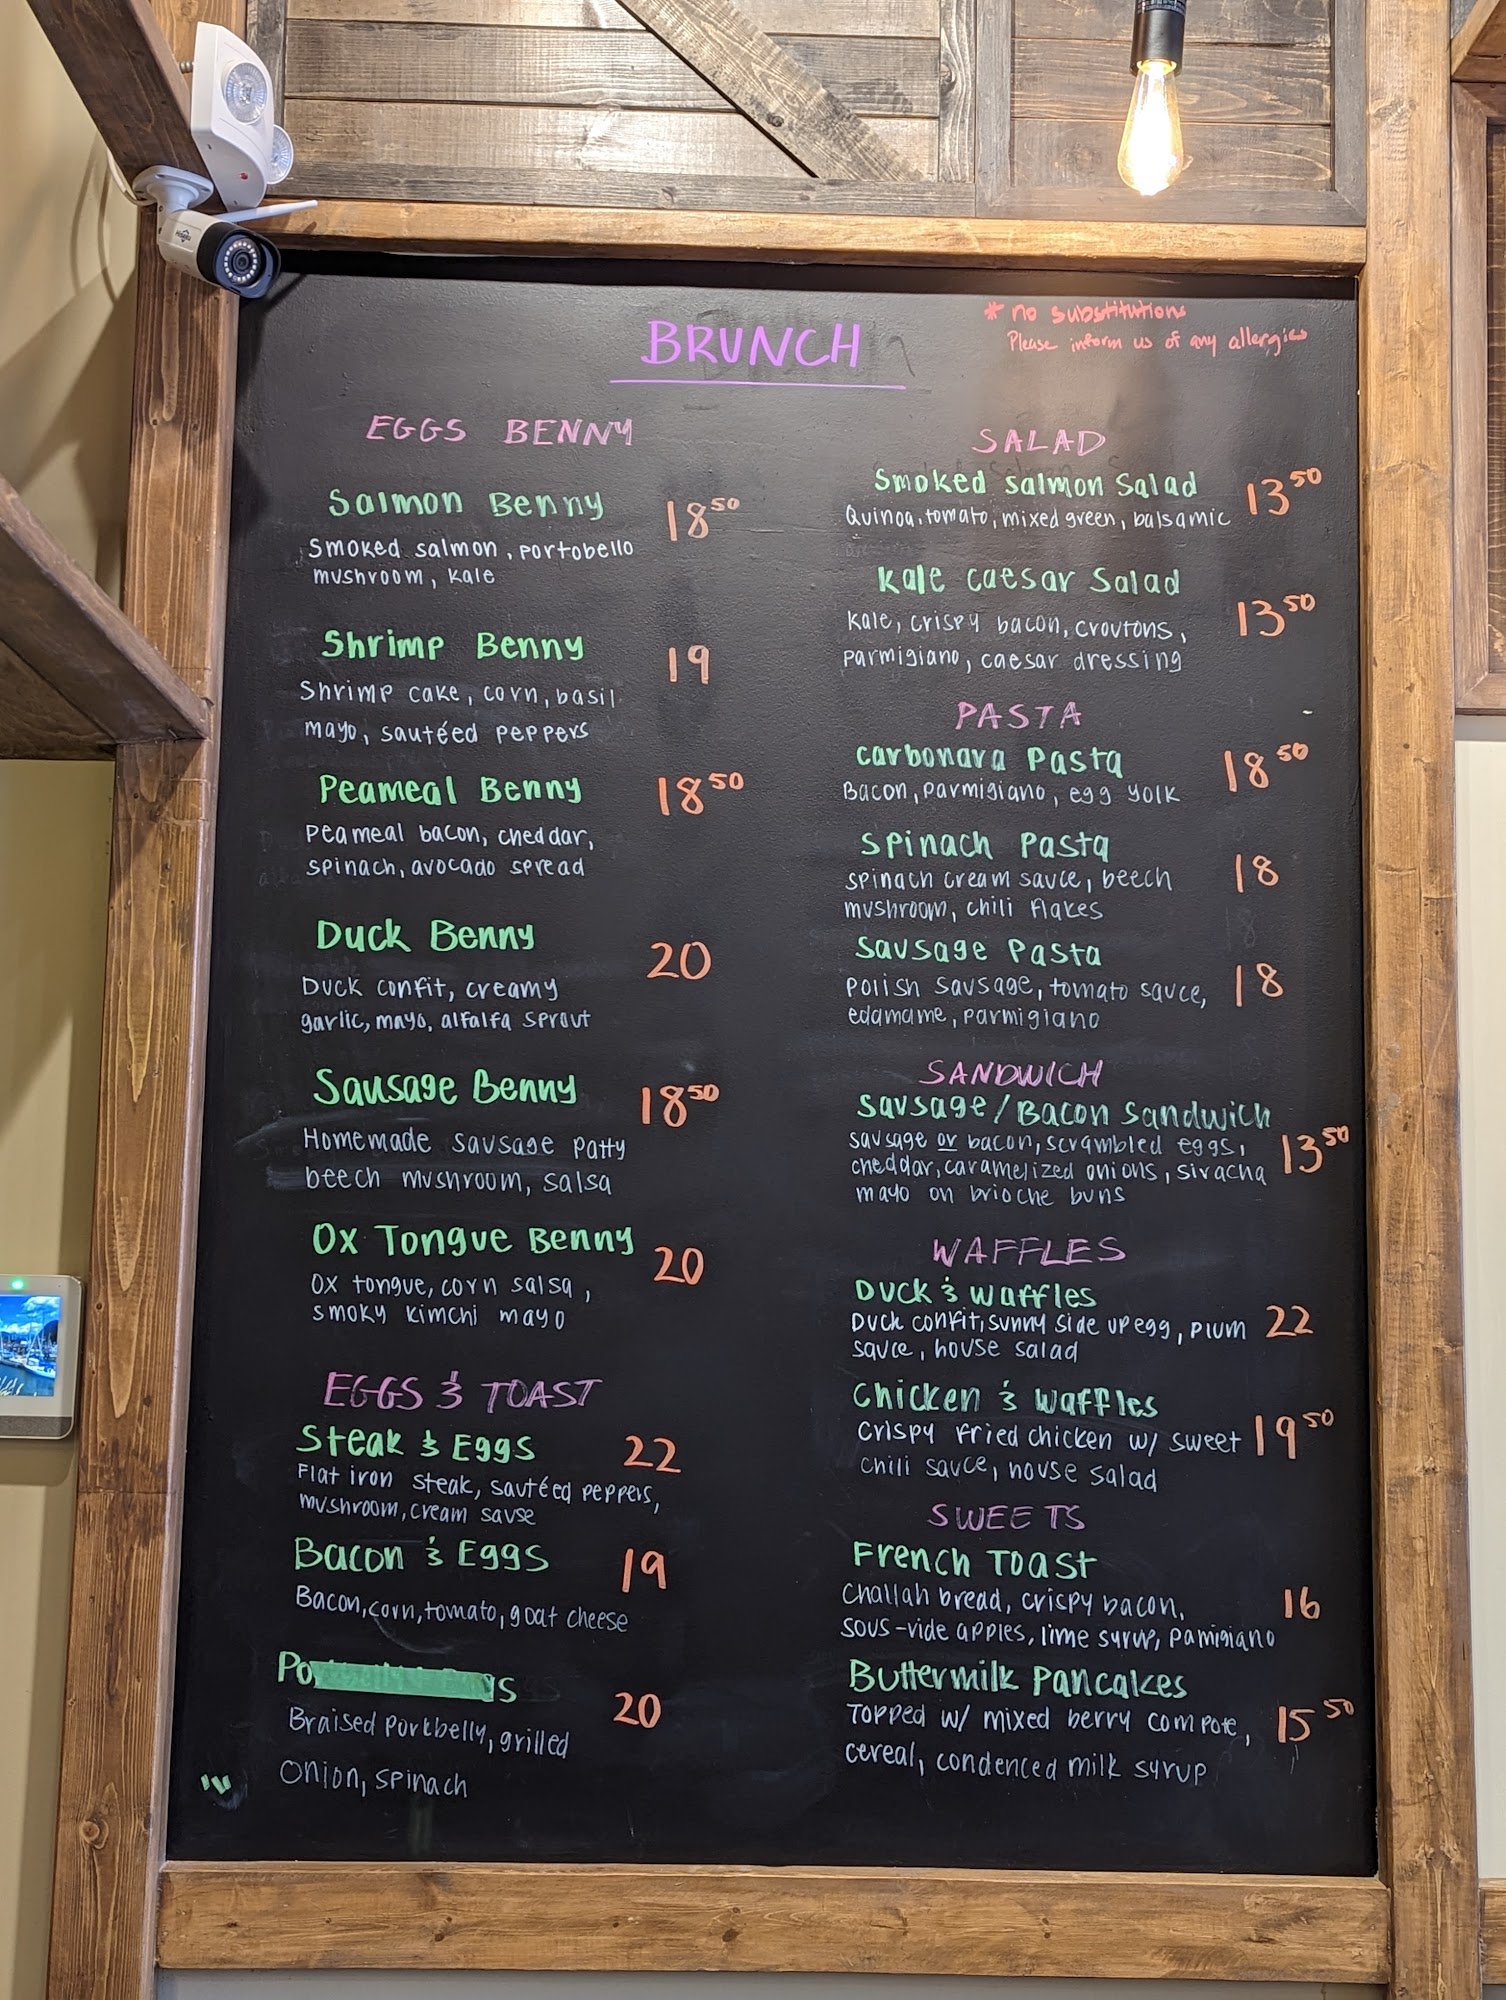 BRUNCH
* no substitutions
Please inform us of any allergies
EGGS BENNY
Salmon Benny 18 50
Smoked salmon, portobello
mushroom, kale
Shrimp Benny 19
Shrimp cake, corn, basil
mayo, sautéed peppers
Peameal Benny 18 50
Peameal bacon, cheddar,
spinach, avocado spread
Duck Benny 20
Duck confit, creamy
garlic, mayo, alfalfa sprout
Sausage Benny 18 50
Homemade sausage patty
beech mushroom, salsa
Ox Tongue Benny 20
Ox tongue, corn salsa,
smoky kimchi mayo
EGGS & TOAST
Steak & Eggs 22
Flat iron steak, sautéed peppers,
mushroom, cream sause
Bacon & Eggs 19
Bacon, corn, tomato, goat cheese
20
Braised porkbelly, grilled
onion, spinach
SALAD
Smoked Salmon Salad 13 50
Quinoa, tomato, mixed green, balsamic
Kale Caesar Salad 13 50
Kale, crispy bacon, croutons,
parmigiano, caesar dressing
PASTA
Carbonara Pasta 18 50
Bacon, parmigiano, egg yolk
Spinach Pasta 18
spinach cream sauce, beech
mushroom, chili flakes
Sausage Pasta 18
polish sausage, tomato sauce,
edamame, parmigiano
SANDWICH
Sausage/Bacon Sandwich 13 50
sausage or bacon, scrambled eggs,
cheddar, caramelized onions, siracha
mayo on brioche buns
WAFFLES
Duck & Waffles 22
Duck confit, sunny side up egg, plum
sauce, house salad
Chicken & Waffles 19 50
Crispy fried chicken w/ sweet
chili sauce, house salad
SWEETS
French Toast 16
Challah bread, crispy bacon,
sous-vide apples, lime syrup, pamigiano
Buttermilk Pancakes 15 50
Topped w/ mixed berry compote,
cereal, condenced milk syrup